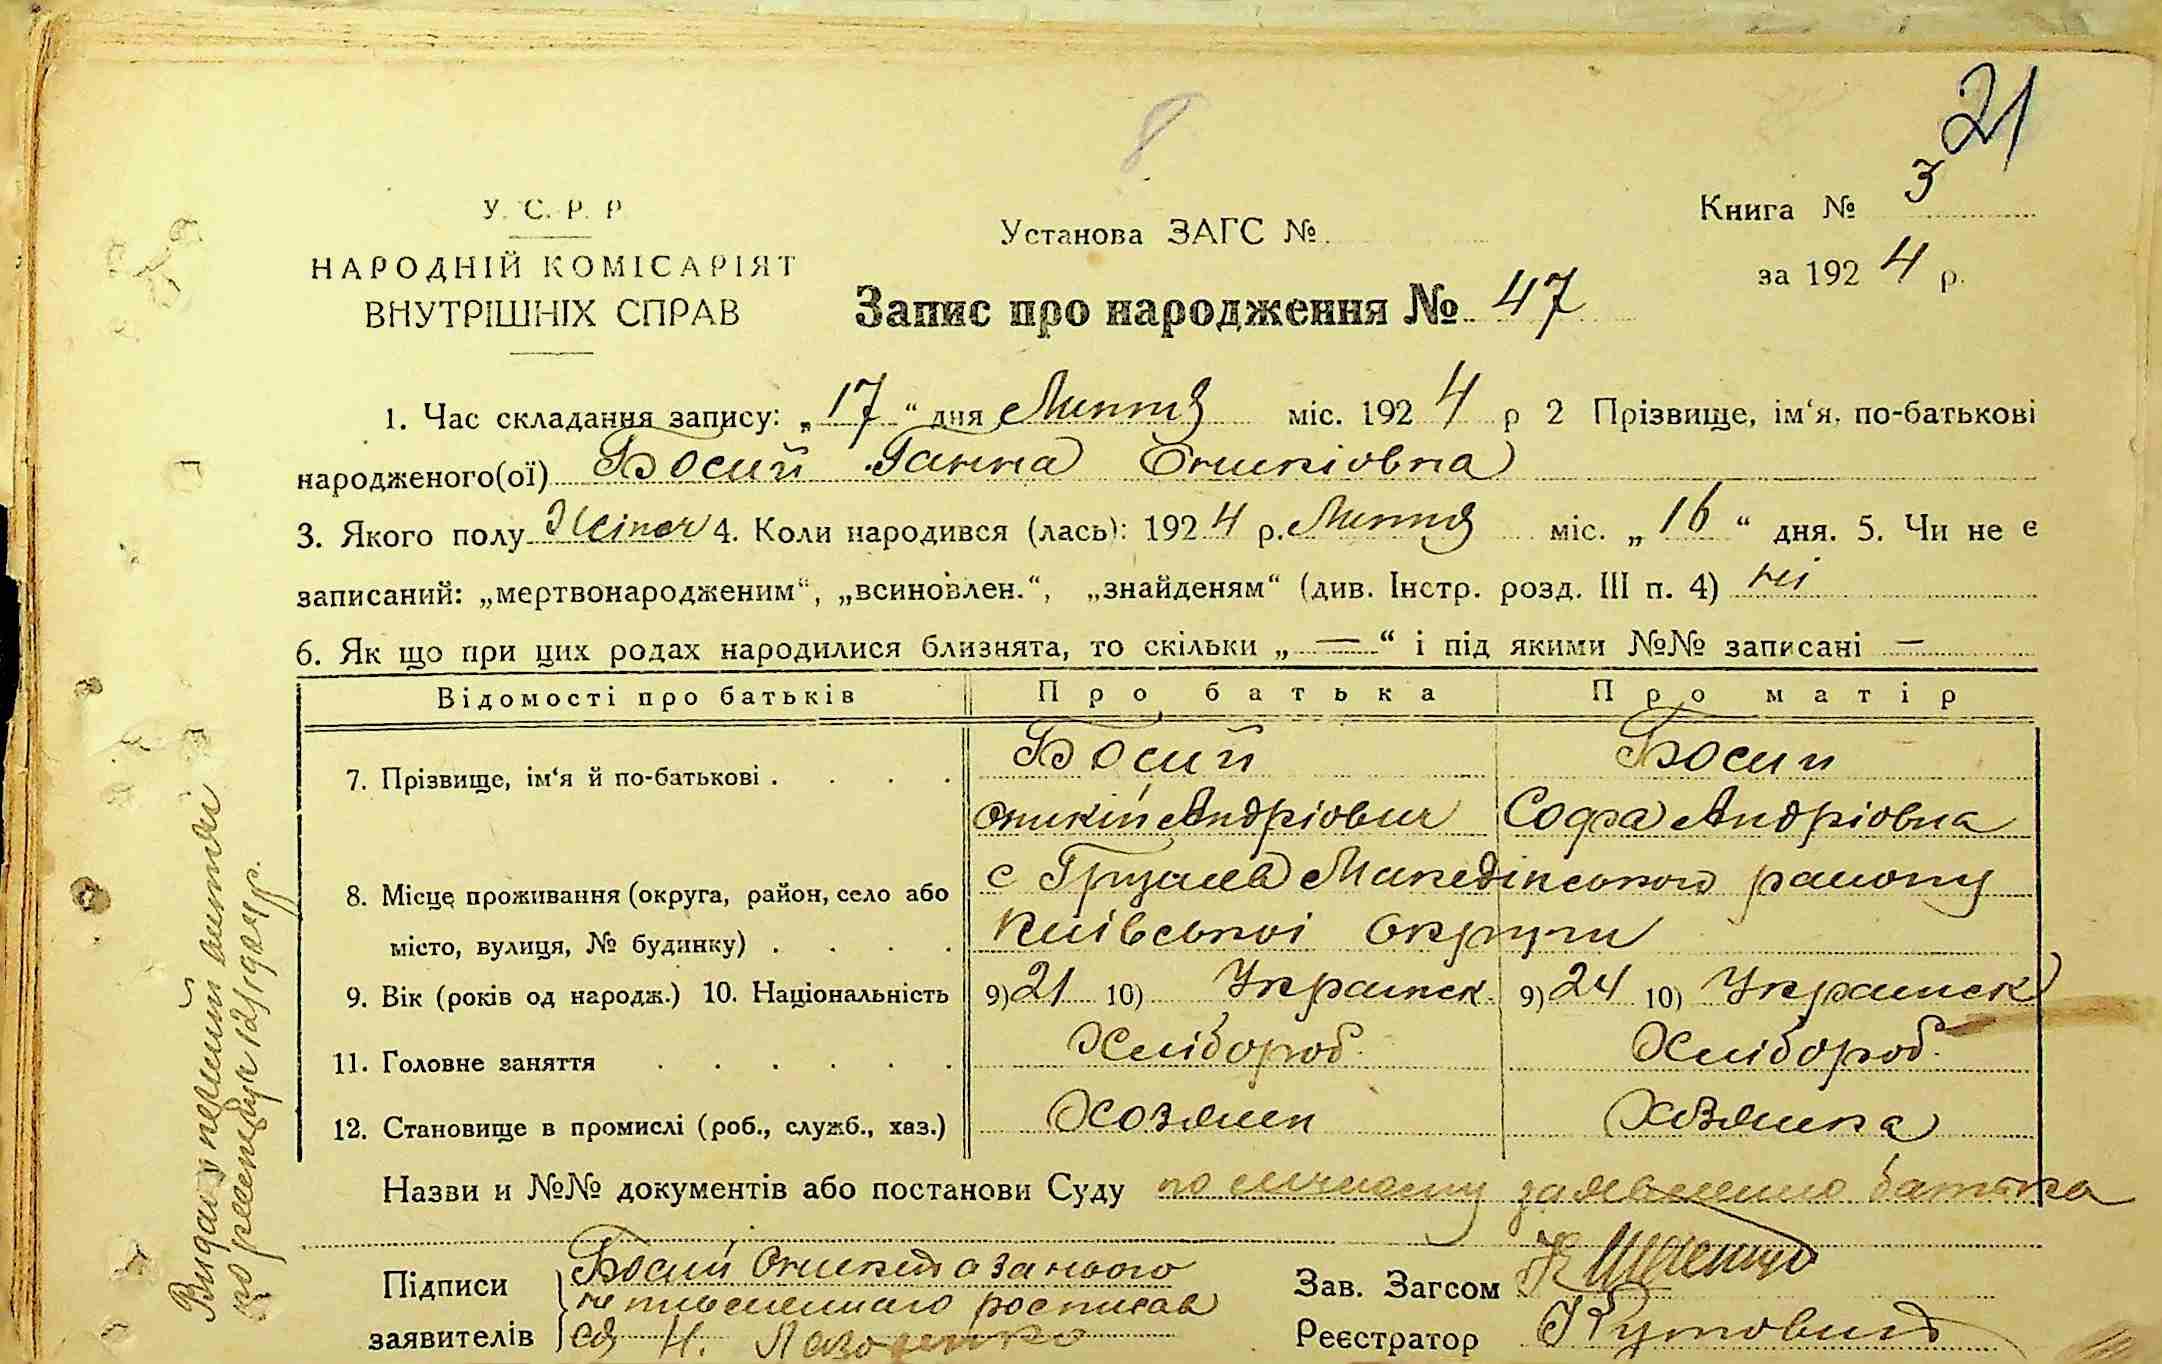 21
8
У. С. Р. Р.
НАРОДНІЙ КОМІСАРІЯТ
ВНУТРІШНІХ СПРАВ
Установа ЗАГС №
Книга № 3
за 1924 р.
Запис про народження № 47
1. Час складання запису: „17“ дня Липня міс. 1924 р 2 Прізвище, ім‘я, по-батькові
народженого(ої) Босий Ганна Оникіовна
3. Якого полу Жіноч 4. Коли народився (лась): 1924 р. Липня міс. „16“ дня. 5. Чи не є
записаний: „мертвонародженим“, „всиновлен.“, „знайденям“ (див. Інстр. розд. III п. 4) ні
6. Як що при цих родах народилися близнята, то скільки „—“ і під якими №№ записані —
Відомості про батьків Про батька Про матір
7. Прізвище, ім‘я й по-батькові . . . . Босий Босии
Оникій Андріович Софа Андріовна
8. Місце проживання (округа, район, село або с Грузьке Македінського району
місто, вулиця, № будинку) . . . . Київськоі Округи
9. Вік (років од народж.) 10. Національність 9) 21 10) Украинск. 9) 24 10) Украинск
11. Головне заняття . . . . . . Хлібороб. Хлібороб.
12. Становище в промислі (роб., служб., хаз.) Хозяин Хозяика
Назви и №№ документів або постанови Суду по личному заявлению батька
Підписи Босий Оникій а за нього
неписьменного росписав
заявителів ся Н.
Зав. Загсом
Реєстратор Кутовий